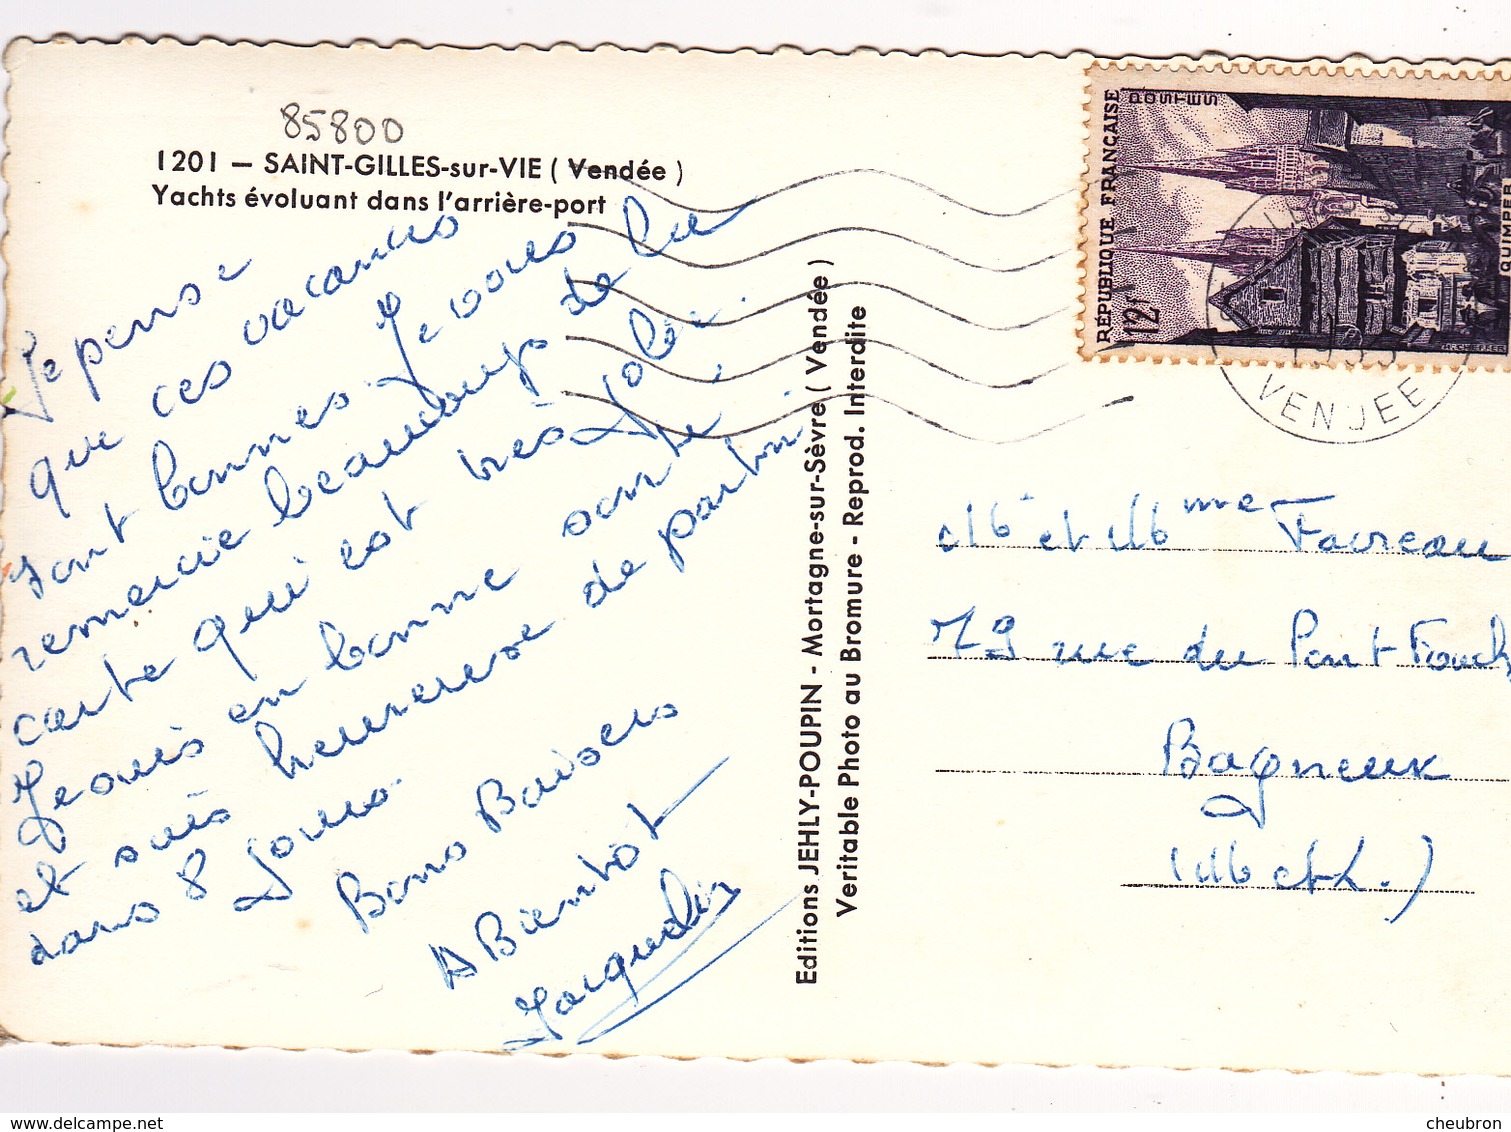 85800
1201 — SAINT-GILLES-sur-VIE ( Vendée )
Yachts évoluant dans l'arrière-port
Je pense
que ces vacances
sont bonnes. Je vous
remercie beaucoup de la
carte qui est très jolie.
Je suis en bonne santé,
et suis heureuse de partir
dans 8 jours.
Bons Baisers
A Bientôt
Jacquelin
Editions JEHLY-POUPIN - Mortagne-sur-Sèvre ( Vendée )
Veritable Photo au Bromure - Reprod. Interdite
RÉPUBLIQUE FRANÇAISE
POSTES
12f
QUIMPER
VENDEE
Mr et Mme Favreau
79 rue du Pont Fouch
Bagneux
(M et L.)
cheubron